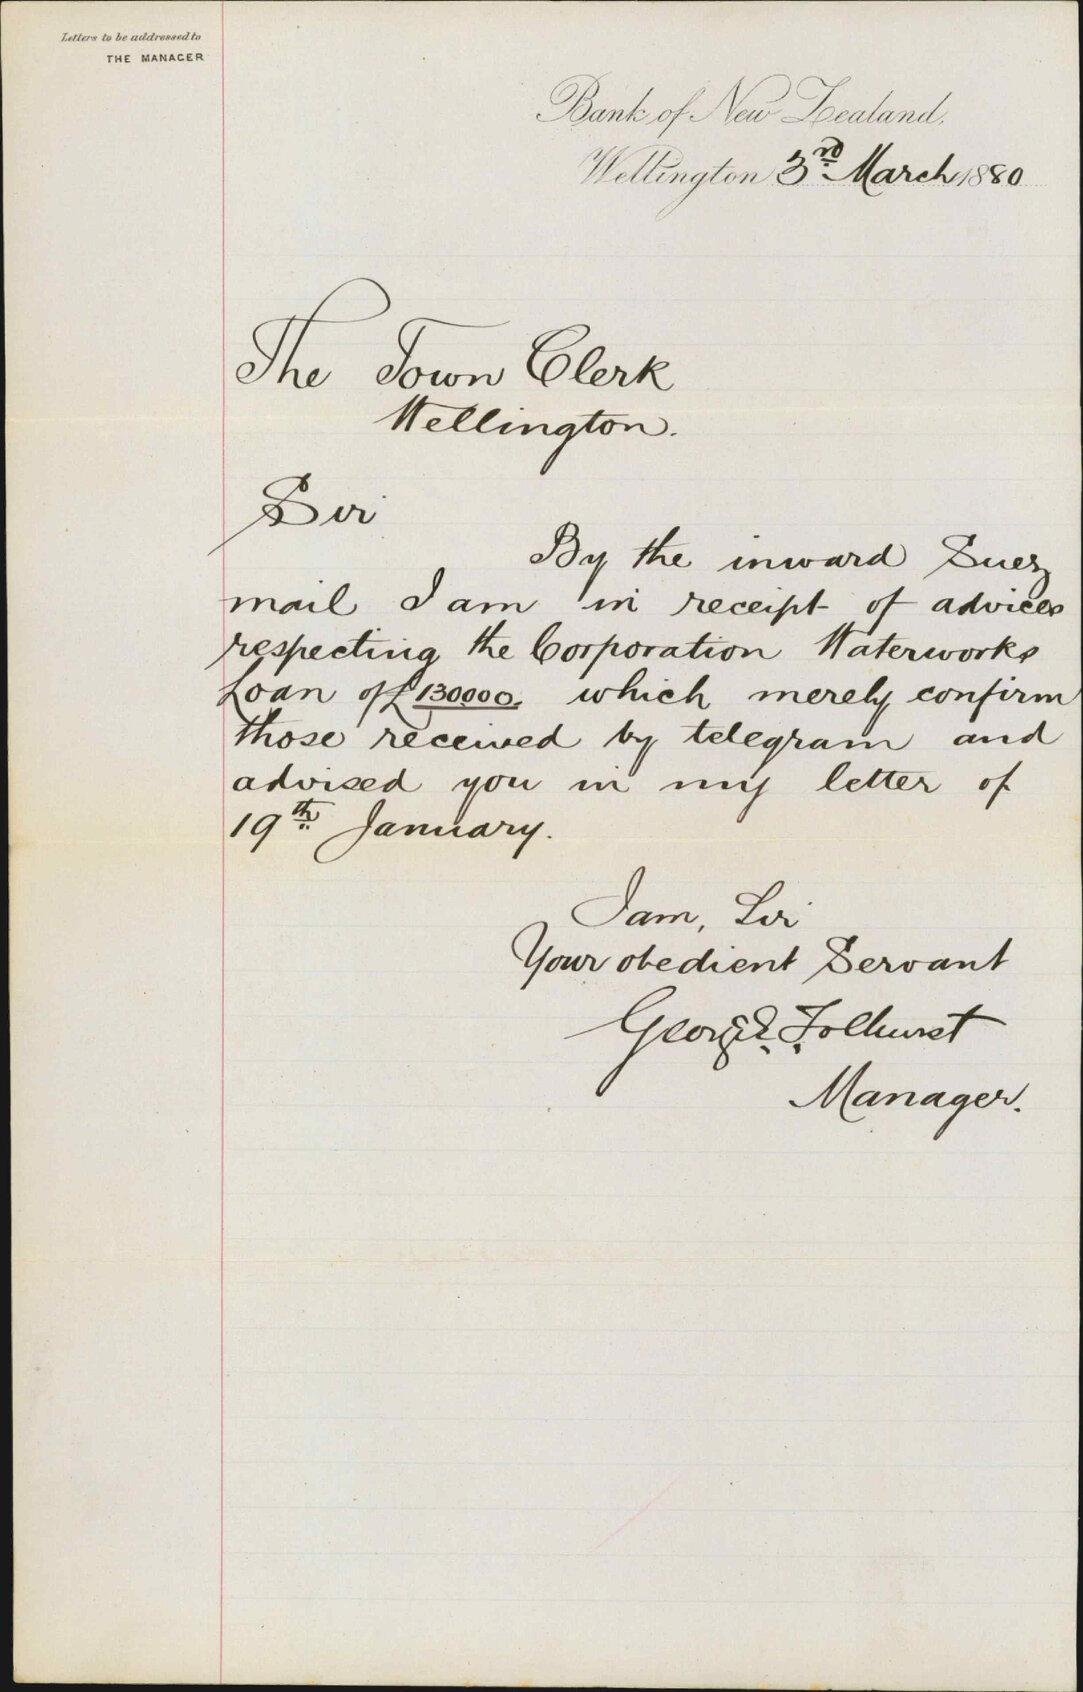 Letters to be addressed to
THE MANAGER
Bank of New Zealand,
Wellington 3rd March 1880
The Town Clerk
Wellington.
Sir
By the inward Suez
mail I am in receipt of advices
respecting the Corporation Waterworks
Loan of £130000. which merely confirm
those received by telegram and
advised you in my letter of
19th January.
I am, Sir
Your obedient Servant
George E. Tolhurst
Manager.